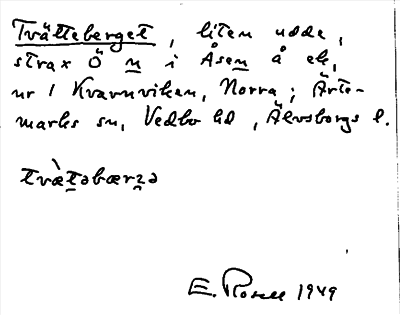 Tvätteberget, liten udde,
strax Ö n i Åsen å ek,
nr 1 Kvarnviken, Norra; Ärte-
marks sn, Vedbo hd, Älvsborgs l.
tvæ̀təbærzə
E. Rosell 1949